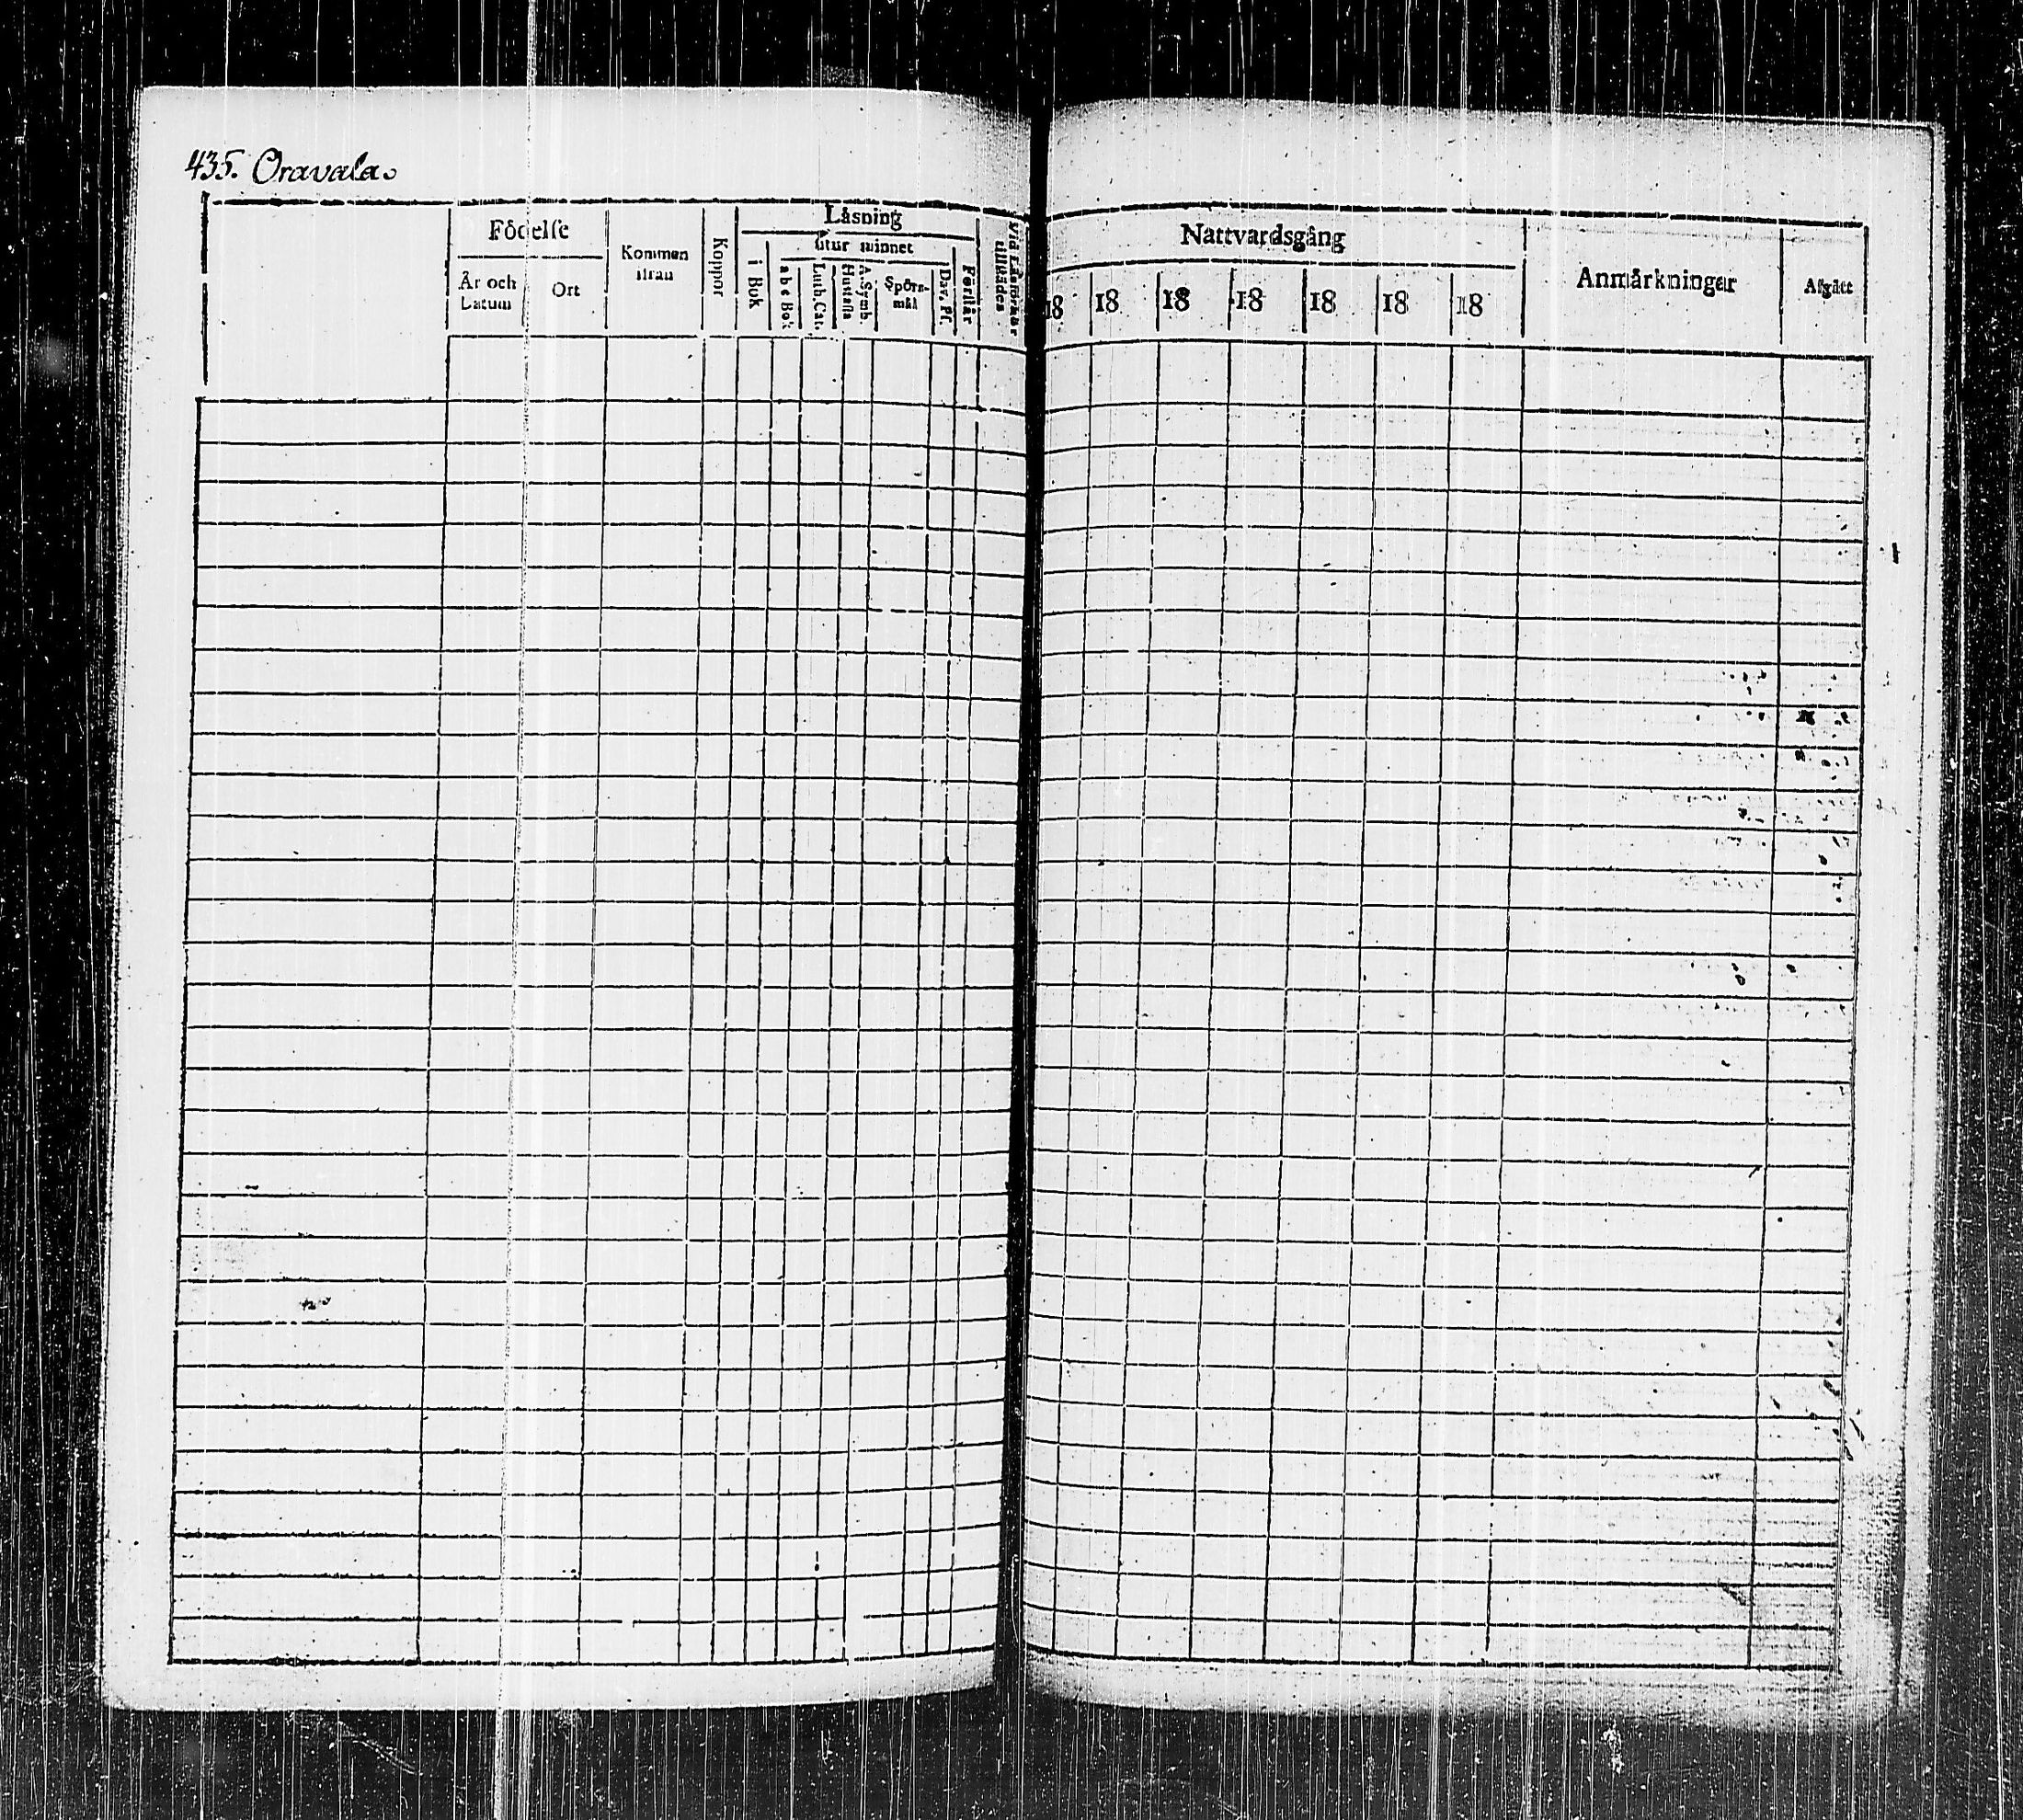 435. Oravala.
Födelse
År och Datum
Ort
Kommen ifrån
Koppor
Läsning
i Bok
utur minnet
a b c Bok
Luth. Cat.
Hustafla
A. Symb.
Spörs-
mål
Dav. Ps.
Förstår
Vid Läsförhör tillstädes
Nattvardsgång
18 18 18 18 18 18 18
Anmärkningar
Afgått